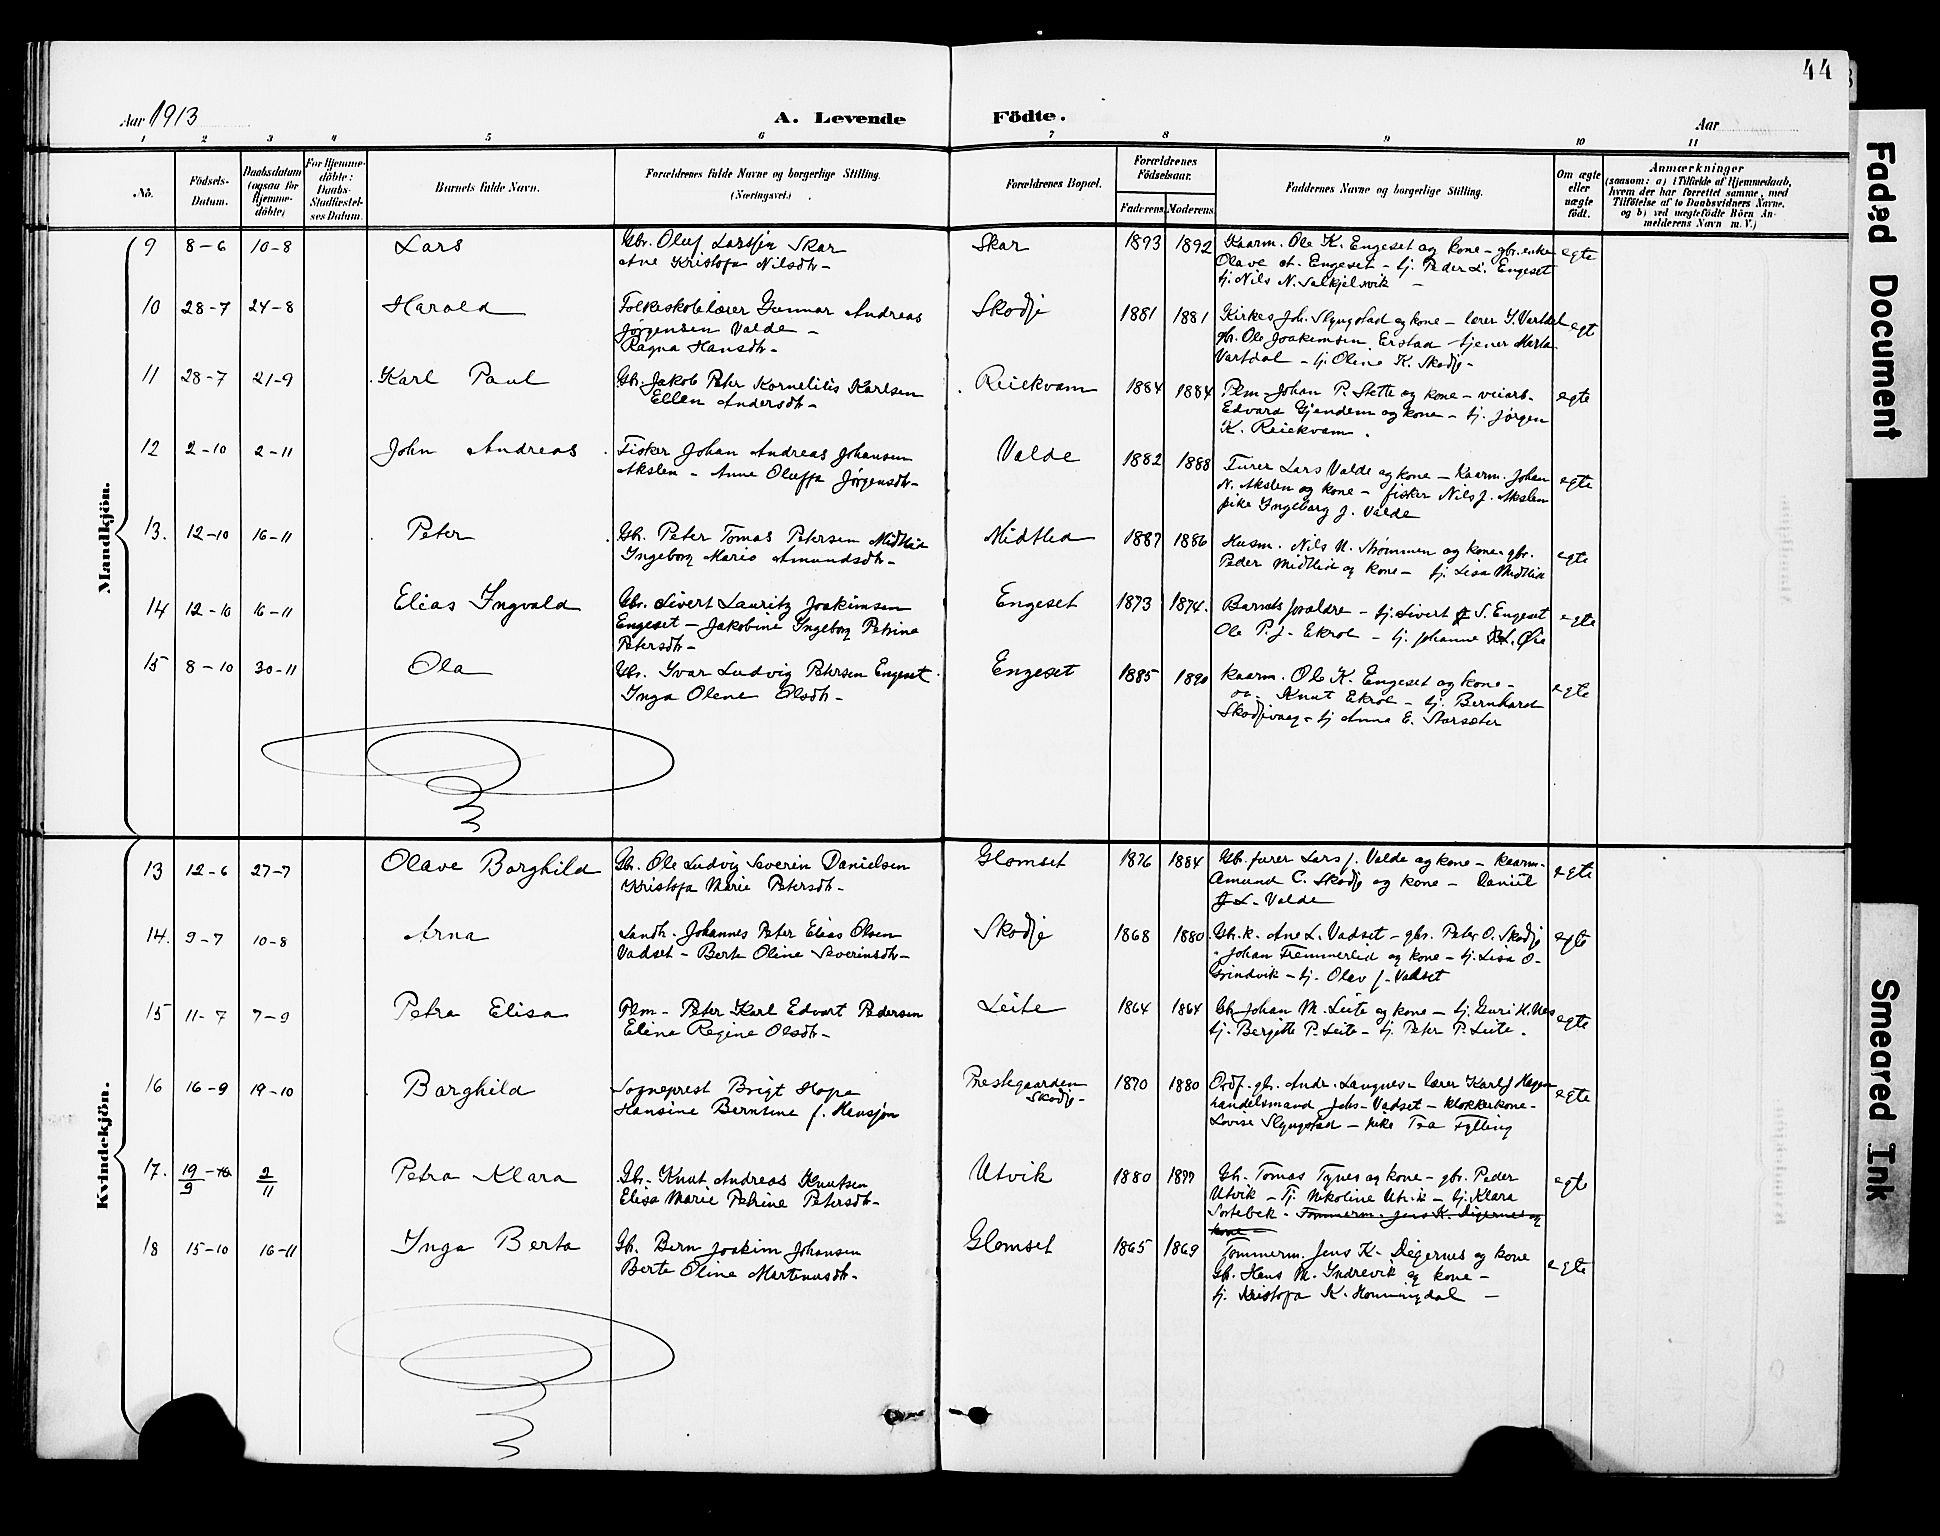 44
Aar 1913
A. Levende Födte.
Aar
1 2 3 4 5 6 7 8 9 10 11
No.
Födsels-Datum.
Daabsdatum (ogsaa för Hjemme-döbte)
For Hjemme-döbte: Daabs-Stadfæstel-ses Datum.
Barnets fulde Navn.
Forældrenes fulde Navne og borgerlige Stilling. (Næringsvei.)
Forældrenes Bopæl.
Forældrenes Födselsaar.
Faderens. Moderens.
Faddernes Navne og borgerlige Stilling.
Om ægte eller uægte födt.
Anmærkninger
(saasom: a) i Tilfælde af Hjemmedaab, hvem der har forrettet samme, med Tilföielse af to Daabsvidners Navne, og b) ved uægtefödte Börn An-melderens Navn m. V.)
Mandkjön.
9 8-6 10-8 Lars
Gbr. Oluf Larssen Skar
Ane Kristofa Nilsdtr-
Skar 1893 1892
Kaarm. Ole K. Engeset og kone - gbr. enke
Olave A. Engeset - tj. Peder L. Engeset
tj. Nils N. Salkjelsvik -
egte
10 28-7 24-8 Harald
Folkeskolelærer Gunnar Andreas
Jørgensen Valde -
Ragna Hansdtr-
Skodje 1881 1881
Kirkes. Joh. Slyngstad og kone - lærer Vartdal
gbr. Ole Joakimsen Erstad - tjener Marta
Vartdal - tj. Oline K. Skodje-
egt
11 28-7 21-9 Karl Paul
Gb. Jakob Peter Kornelius Karlsen
Ellen Andersdtr-
Reiekvam 1884 1884
Plm - Johan P. Stette og kone - veiarb.
Edvard Gjendem og kone - tj. Jørgen
K. Reiekvam.
egte
12 2-10 2-11 John Andreas
Fisker Johan Andreas Johansen
Akslen - Anne Oluffa Jørgensdtr-
Valde 1882 1888
Furer Lars Valde og kone - Kaarm. Johan
N. Akslen og kone - fisker Nils J. Akslen
pike Ingeborg J. Valde
egte
13. 12-10 16-11 Peter
Gb. Peter Tomas Petersen Midtlid
Ingeborg Marie Amundsdtr-
Midtlid 1887 1886
Husm. Nils N. Strømmen og kone - gbr.
Peder Midtlid og kone - tj. Lisa Midtlid
egte
14 12-10 16-11 Elias Ingvald
Gbr. Sivert Lauritz Joakimsen
Engeset - Jakobine Ingeborg Petrine
Petersdtr-
Engeset 1873 1874.
Barnets forældre - tj. Sivert S. Engeset
Ole P. J. Ekrol - tj. Johanne L. Øie
egte
15 8-10 30-11 Ola
Gbr. Ivar Ludvig Petersen Engeset
Inga Olene Olsdtr-
Engeset 1885 1890
Kaarm. Ole K. Engeset og kone -
Knut Ekrol - tj. Bernhard
Skodjevaag - tj Anna E. Storsæter
egte
Kvindekjön.
13 12-6 27-7 Olave Borghild
Gb. Ole Ludvig Severin Danielsen
Kristofa Marie Petersdtr-
Glomset 1876 1884
Gb. furer Lars J. Valde og kone - kaarm-
Amund C. Skodje og kone - Daniel
L. Valde
egte
14. 9-7 10-8 Arna
Landh. Johannes Peter Elias Olsen
Vadset - Berte Oline Severinsdtr-
Skodje 1868 1880
Gb. k. Ane L. Vadset - gbr. Peter O. Skodje
- Johan Fremmerlid og kone - tj. Lisa O-
Grindvik - tj. Olav J. Vadset
egte
15 11-7 7-9 Petra Elisa
Plm - Peter Karl Edvart Pedersen
Elina Regine Olsdtr-
Leite 1864 1864
Gb. Johan M. Leite og kone - tj. Guri H. Nes
tj. Bergitte P. Leite - tj. Peter P. Leite.
egte
16 16-9 19-10 Borghild
Sogneprest Brigt Hope
Hansine Berntine f. Hansson
Prestgaarden
Skodje-
1870 1880
Ordf. gbr. Andr. Langnes - lærer Karl J Hagen
handelsmand Johs- Vadset - klokkerkone-
Lovise Slyngstad - pike Tea Fylling
egte
17. 19/9 2/11 Petra Klara
Gbr. Knut Andreas Knutsen
Elisa Marie Petrine Petersdtr-
Utvik 1880 1877
Gb. Tomas Tynes og kone - gbr. Peder
Utvik - Tj. Nikoline Utvik - tj. Klara
Sortebek - Tømmerm. Jens K. Digernes og
kone -
egte
18 15-10 16-11 Inga Berta
Gb. Bern Joakim Johansen
Berte Oline Martinusdtr-
Glomset 1865 1869
Tømmerm. Jens K. Digernes og kone
Gb. Hans M. Indrevik og kone -
tj. Kristofa K. Honningdal -
egte
Faded Document
Smeared Ink